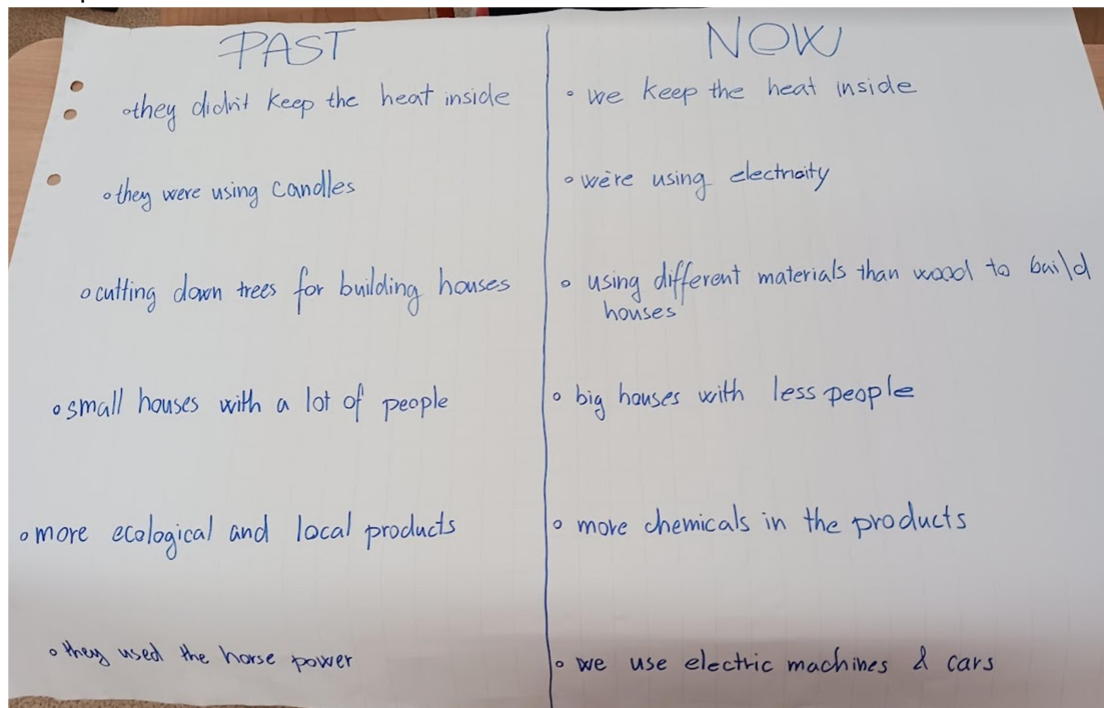 PAST
• they didn't keep the heat inside
• they were using candles
• cutting down trees for building houses
• small houses with a lot of people
• more ecological and local products
• they used the horse power
NOW
• we keep the heat inside
• we're using electricity
• using different materials than wood to build
houses
• big houses with less people
• more chemicals in the products
• we use electric machines & cars